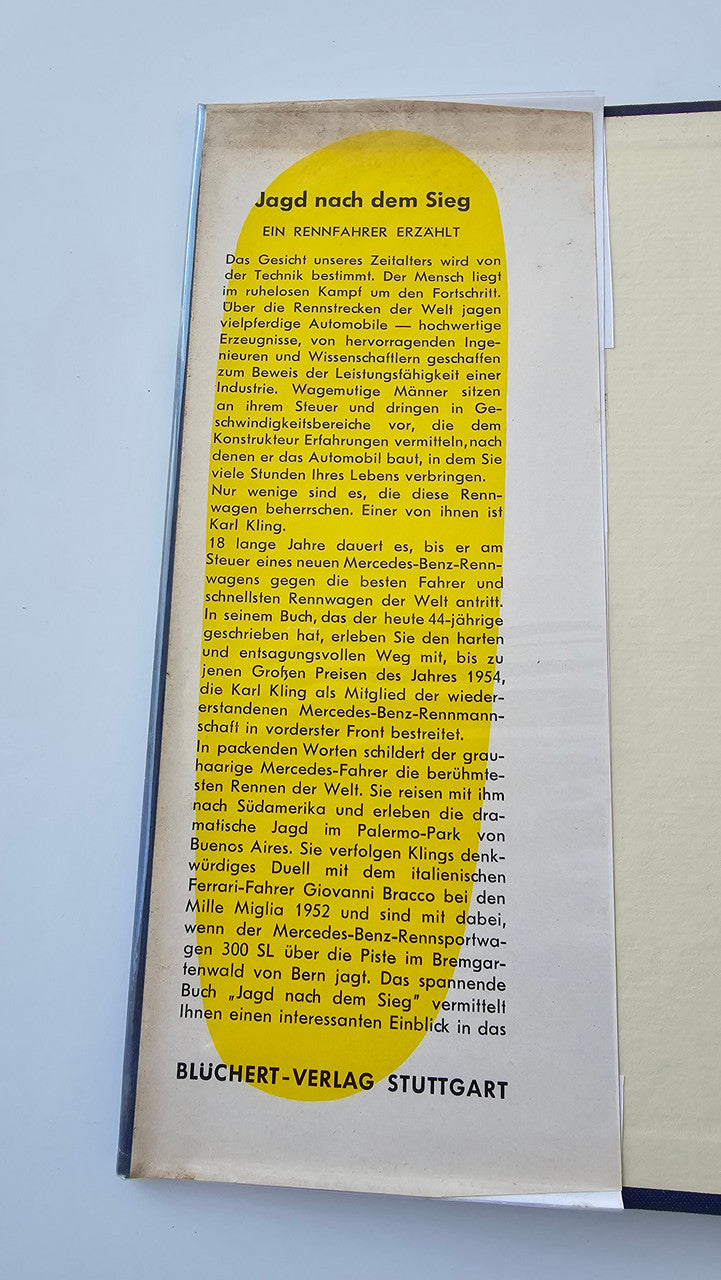 Jagd nach dem Sieg
EIN RENNFAHRER ERZÄHLT
Das Gesicht unseres Zeitalters wird von
der Technik bestimmt. Der Mensch liegt
im ruhelosen Kampf um den Fortschritt.
Über die Rennstrecken der Welt jagen
vielpferdige Automobile — hochwertige
Erzeugnisse, von hervorragenden Inge-
nieuren und Wissenschaftlern geschaffen
zum Beweis der Leistungsfähigkeit einer
Industrie. Wagemutige Männer sitzen
an ihrem Steuer und dringen in Ge-
schwindigkeitsbereiche vor, die dem
Konstrukteur Erfahrungen vermitteln, nach
denen er das Automobil baut, in dem Sie
viele Stunden Ihres Lebens verbringen.
Nur wenige sind es, die diese Renn-
wagen beherrschen. Einer von ihnen ist
Karl Kling.
18 lange Jahre dauert es, bis er am
Steuer eines neuen Mercedes-Benz-Renn-
wagens gegen die besten Fahrer und
schnellsten Rennwagen der Welt antritt.
In seinem Buch, das der heute 44-jährige
geschrieben hat, erleben Sie den harten
und entsagungsvollen Weg mit, bis zu
jenen Großen Preisen des Jahres 1954,
die Karl Kling als Mitglied der wieder-
erstandenen Mercedes-Benz-Rennmann-
schaft in vorderster Front bestreitet.
In packenden Worten schildert der grau-
haarige Mercedes-Fahrer die berühmte-
sten Rennen der Welt. Sie reisen mit ihm
nach Südamerika und erleben die dra-
matische Jagd im Palermo-Park von
Buenos Aires. Sie verfolgen Klings denk-
würdiges Duell mit dem italienischen
Ferrari-Fahrer Giovanni Bracco bei den
Mille Miglia 1952 und sind mit dabei,
wenn der Mercedes-Benz-Rennsportwa-
gen 300 SL über die Piste im Bremgar-
tenwald von Bern jagt. Das spannende
Buch „Jagd nach dem Sieg" vermittelt
Ihnen einen interessanten Einblick in das
BLÜCHERT-VERLAG STUTTGART